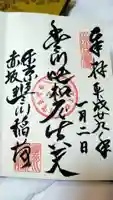 奉拝 平成廿九年
一月二日
豊川吒枳尼真天
東京
赤坂豊川稲荷